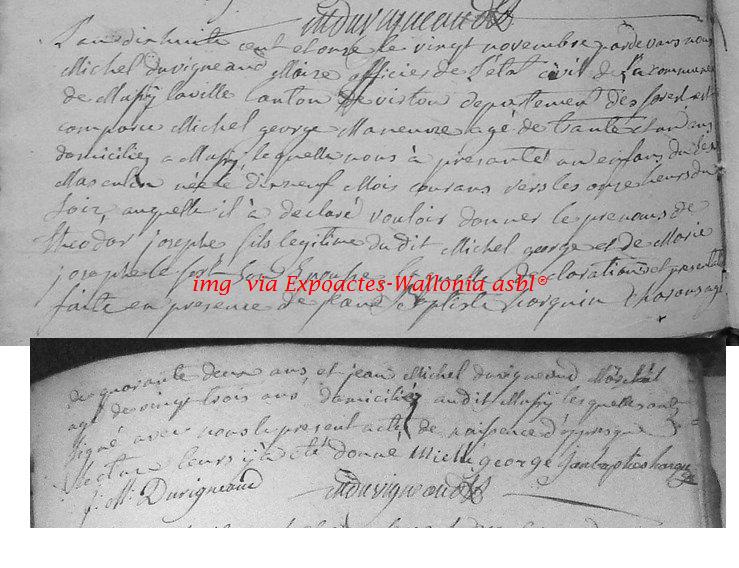 mduvigneaud
L'an dix huit cent et onze le vingt novembre pardevans nous
Michel duvigneaud Maire officier de l'état civil de la commune
de Mussy laville canton de virton departement des forest est
comparu Michel george Maneuvre agé de trante et un ans
domiciliez a Mussy, lequelle nous à présanté un enfans du sex
Masculin née le dixneuf Mois courans vers les onze heurs du
soir, auquelle il à declaré vouloir donner le prenoms de
theodor josephe fils legitime du dit Michel george et de Marie
josephe le fort son Epouse declaration et presentat
img via Expoactes-Wallonia asbl®
faite en presence de jean Baptiste agé
de quarante deux ans et jean Michel duvigneaud
agé de vingt trois ans domiciliéz audit Mussy lesquelles ont
signé avec nous le present acte de naissence d'appres que
lecture leurs y a été donné Michl george jeanbaptiste
j. M. Duvigneaud mduvigneaud